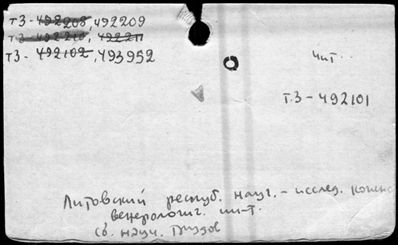 тЗ-492208, 492209
тЗ-492210, 492211
тЗ-492102, 493952
Чит..
тЗ-492101
Литовский респуб. науч.-исслед. кожно
венерологич. ин-т.
Сб. науч. Трудов